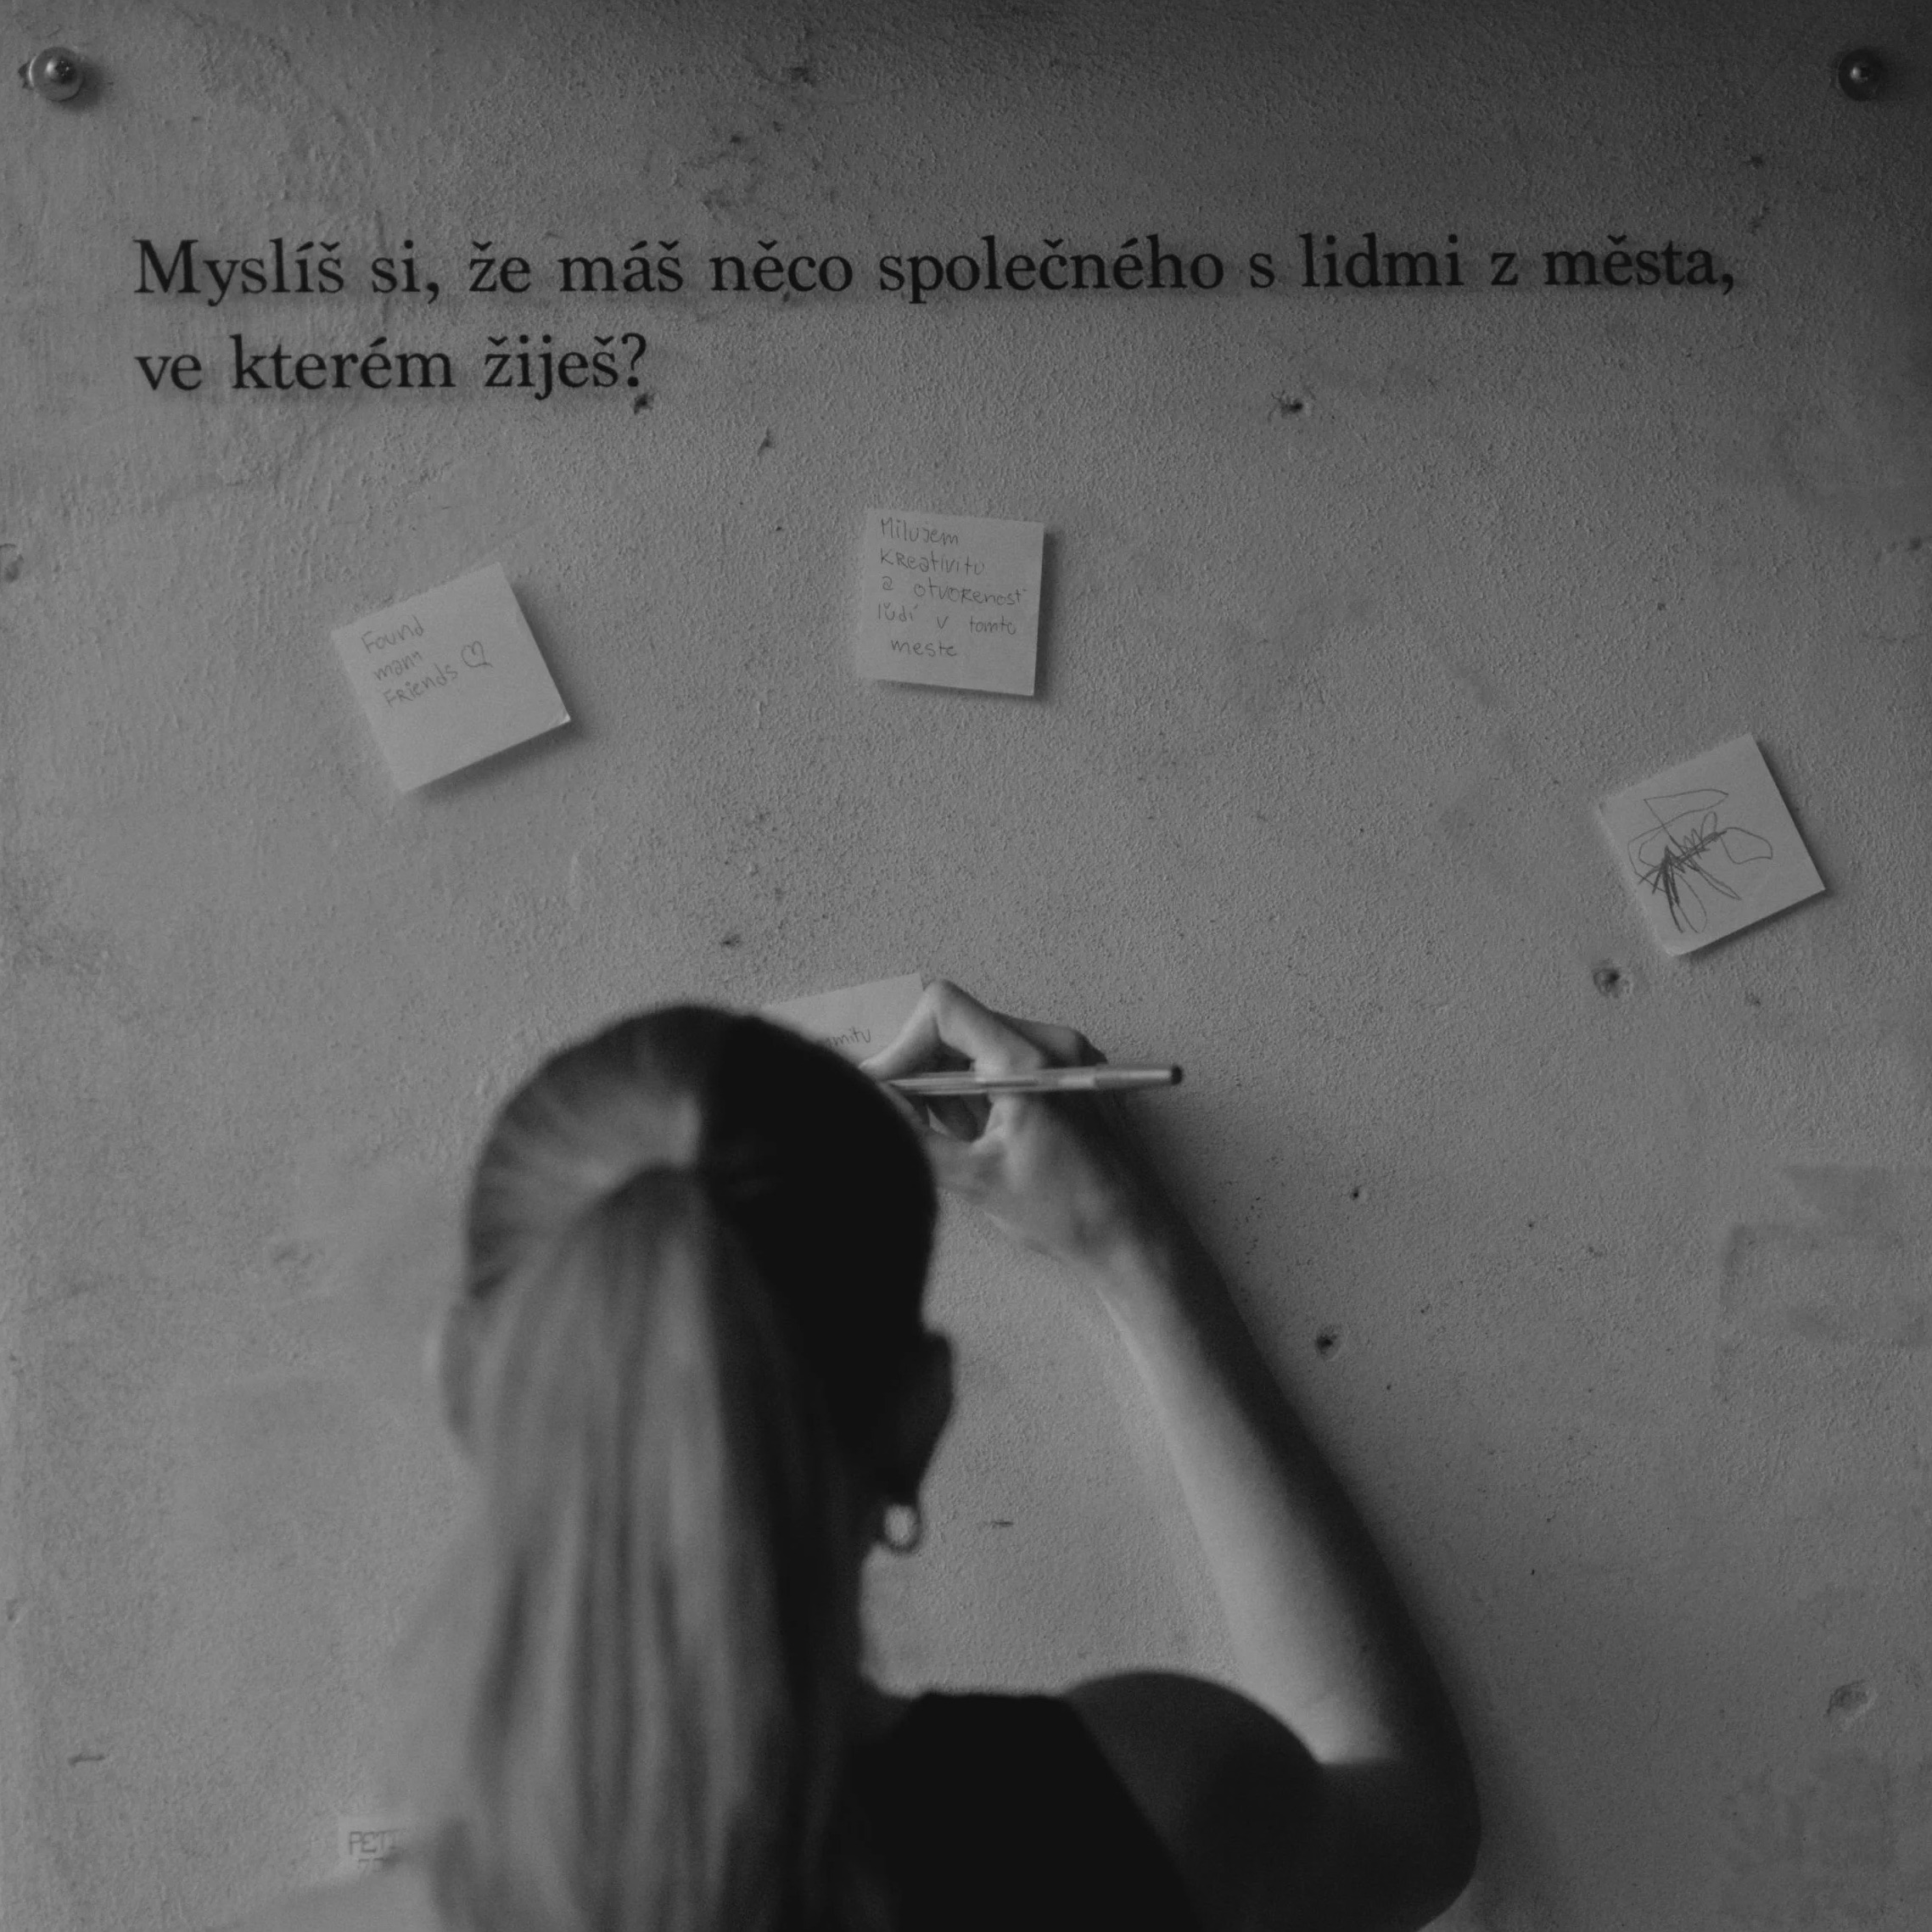 Myslíš si, že máš něco společného s lidmi z města,
ve kterém žiješ?
Found
many
FRiends
Milujem
KReativitu
a otvoRenosť
ľudí v tomto
meste